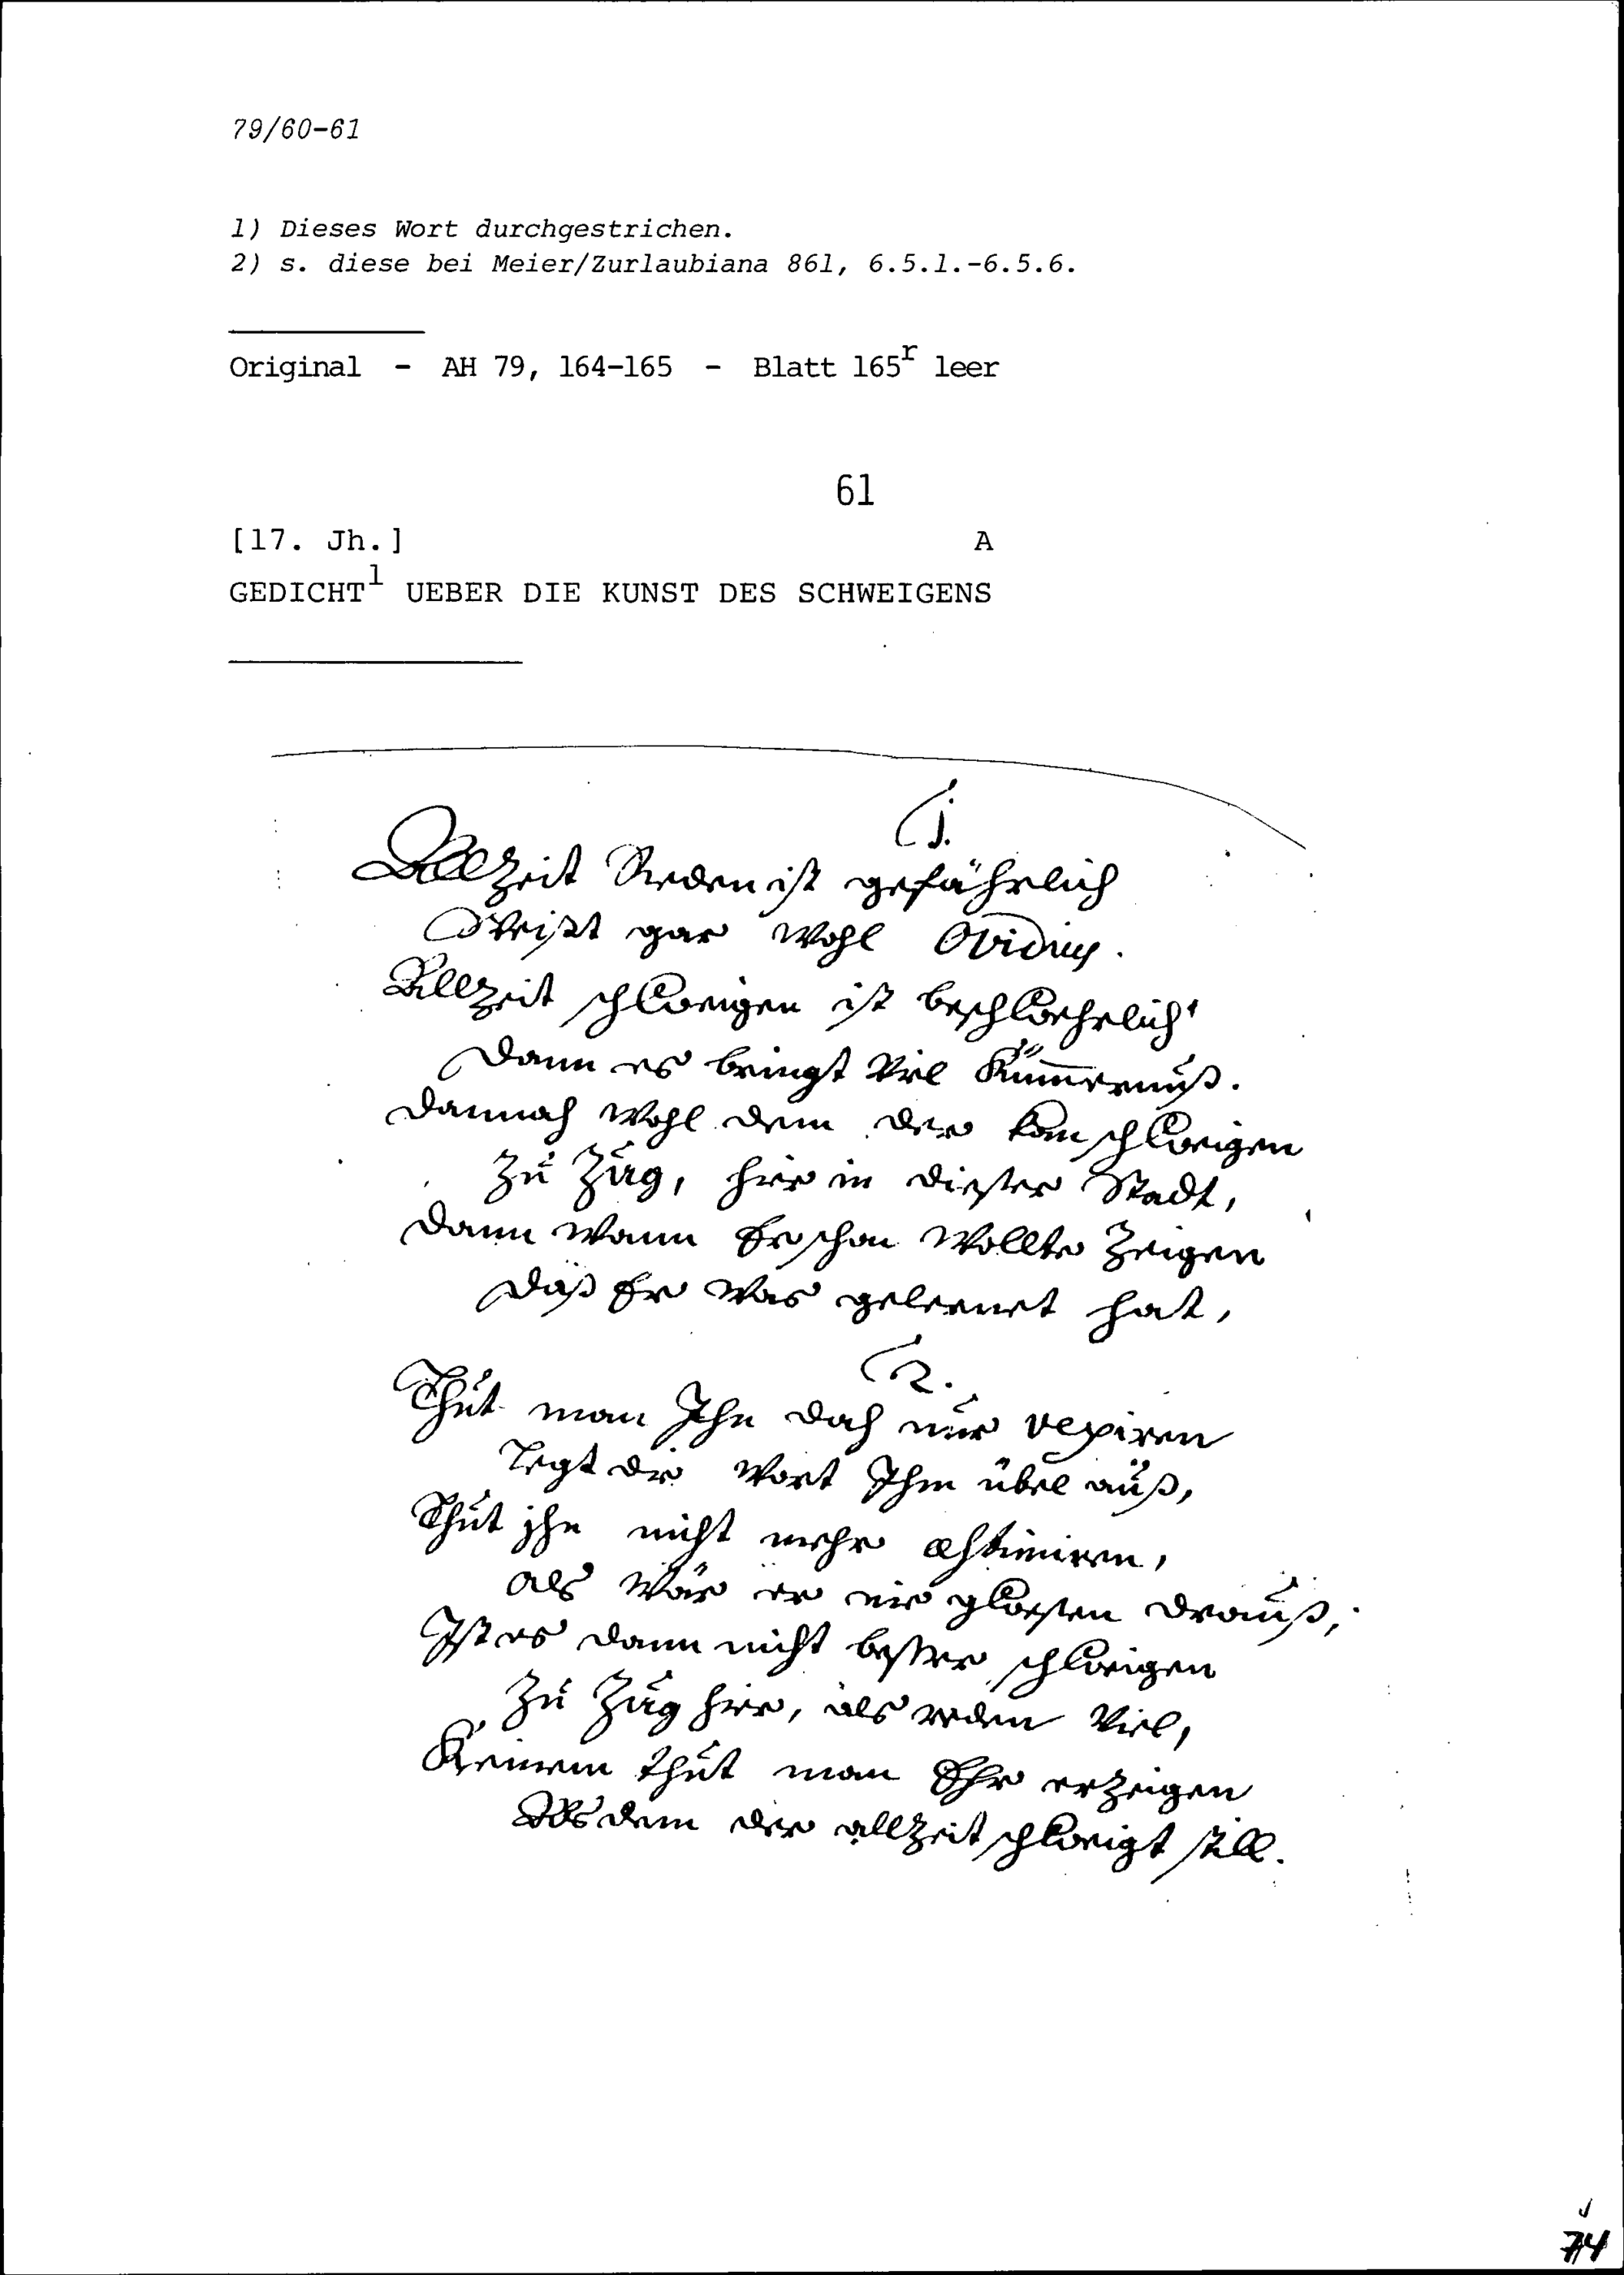 79/60-61
1) Dieses Wort durchgestrichen.
2) s. diese bei Meier/Zurlaubiana 861, 6.5.1.-6.5.6.
Original - AH 79, 164-165 - Blatt 165r leer
61
[17. Jh.] A
GEDICHT1 UEBER DIE KUNST DES SCHWEIGENS
1.
Allzeit Reden ist gefährlich
Weißt gar wohl Ovidius.
Allzeit schweigen ist beschwehrlich
Dann es bringt Viel Kümernuß.
Dannoch wohl dem der kan schweigen
Zu Zug, hier in dießer Stadt,
Dann wann Er schon wollte Zeigen
Daß Er was gelernet hat,
2.
Thut man Ihn doch nur vexiren
Legt die Wort Ihm übel auß,
Thut jhn nicht mehr æstimiren,
als wär er nie gweßen drauß,
Ist es dann nicht besser schweigen
Zu Zug hier, als reden Viel,
Keinem thut man Ehr erzeigen
Als dem der allzeit schweigt still.
74